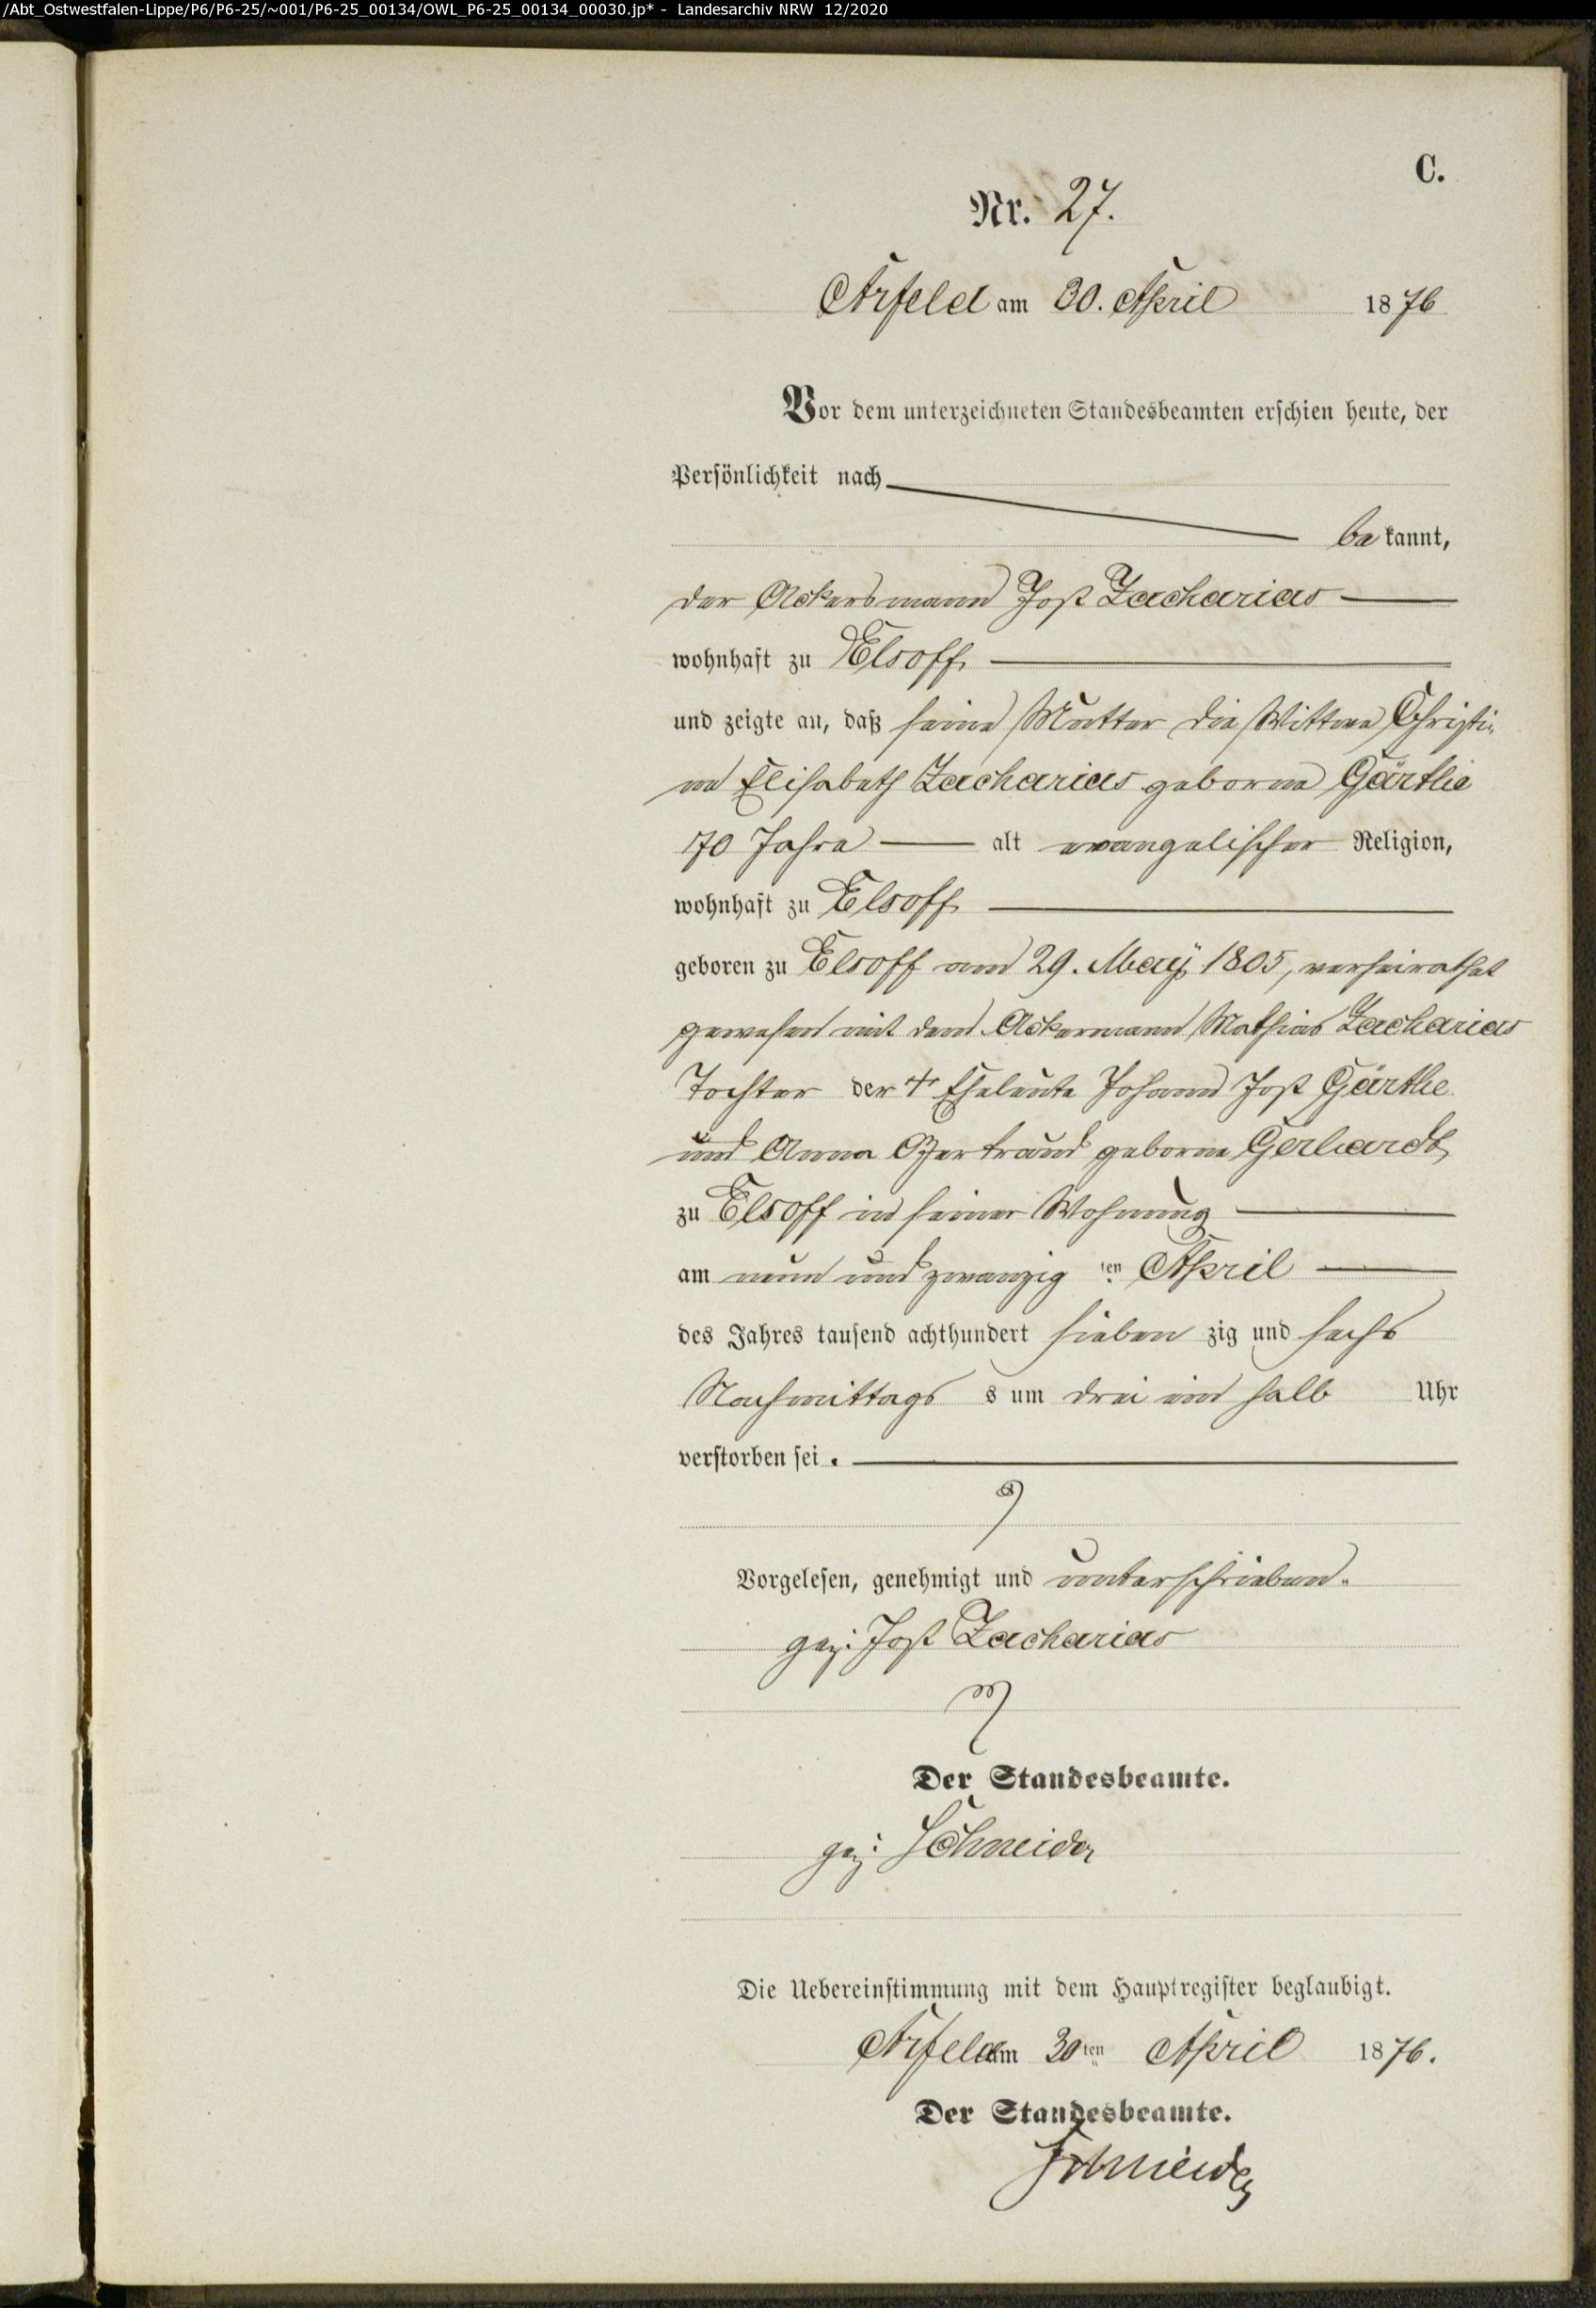 /Abt_Ostwestfalen-Lippe/P6/P6-25/~001/P6-25_00134/OWL_P6-25_00134_00030.jp* - Landesarchiv NRW 12/2020
C.
Nr. 27.
Arfeld am 30. April 1876
Vor dem unterzeichneten Standesbeamten erschien heute, der
Persönlichkeit nach
bekannt,
der Ackersmann Jost Zacharias
wohnhaft zu Elsoff,
und zeigte an, daß seine Mutter die Wittwe Christi-
ne Elisabeth Zacharias geborne Gärthe
70 Jahre alt evangelischer Religion,
wohnhaft zu Elsoff,
geboren zu Elsoff am 29. May 1805, verheirathet
gewesen mit dem Ackermann Mathias Zacharias
Tochter der + Eheleute Johann Jost Gärthe
und Anna Gertraud geborne Gerhardt,
zu Elsoff in seiner Wohnung
am neun und zwanzig ten April
des Jahres tausend achthundert sieben zig und sechs
Nachmittags s um drei ein halb Uhr
verstorben sei.
Vorgelesen, genehmigt und unterschrieben.
gez: Jost Zacharias
Der Standesbeamte.
gez: Schneider
Die Uebereinstimmung mit dem Hauptregister beglaubigt.
Arfeld am 30ten April 1876.
Der Standesbeamte.
Schneider